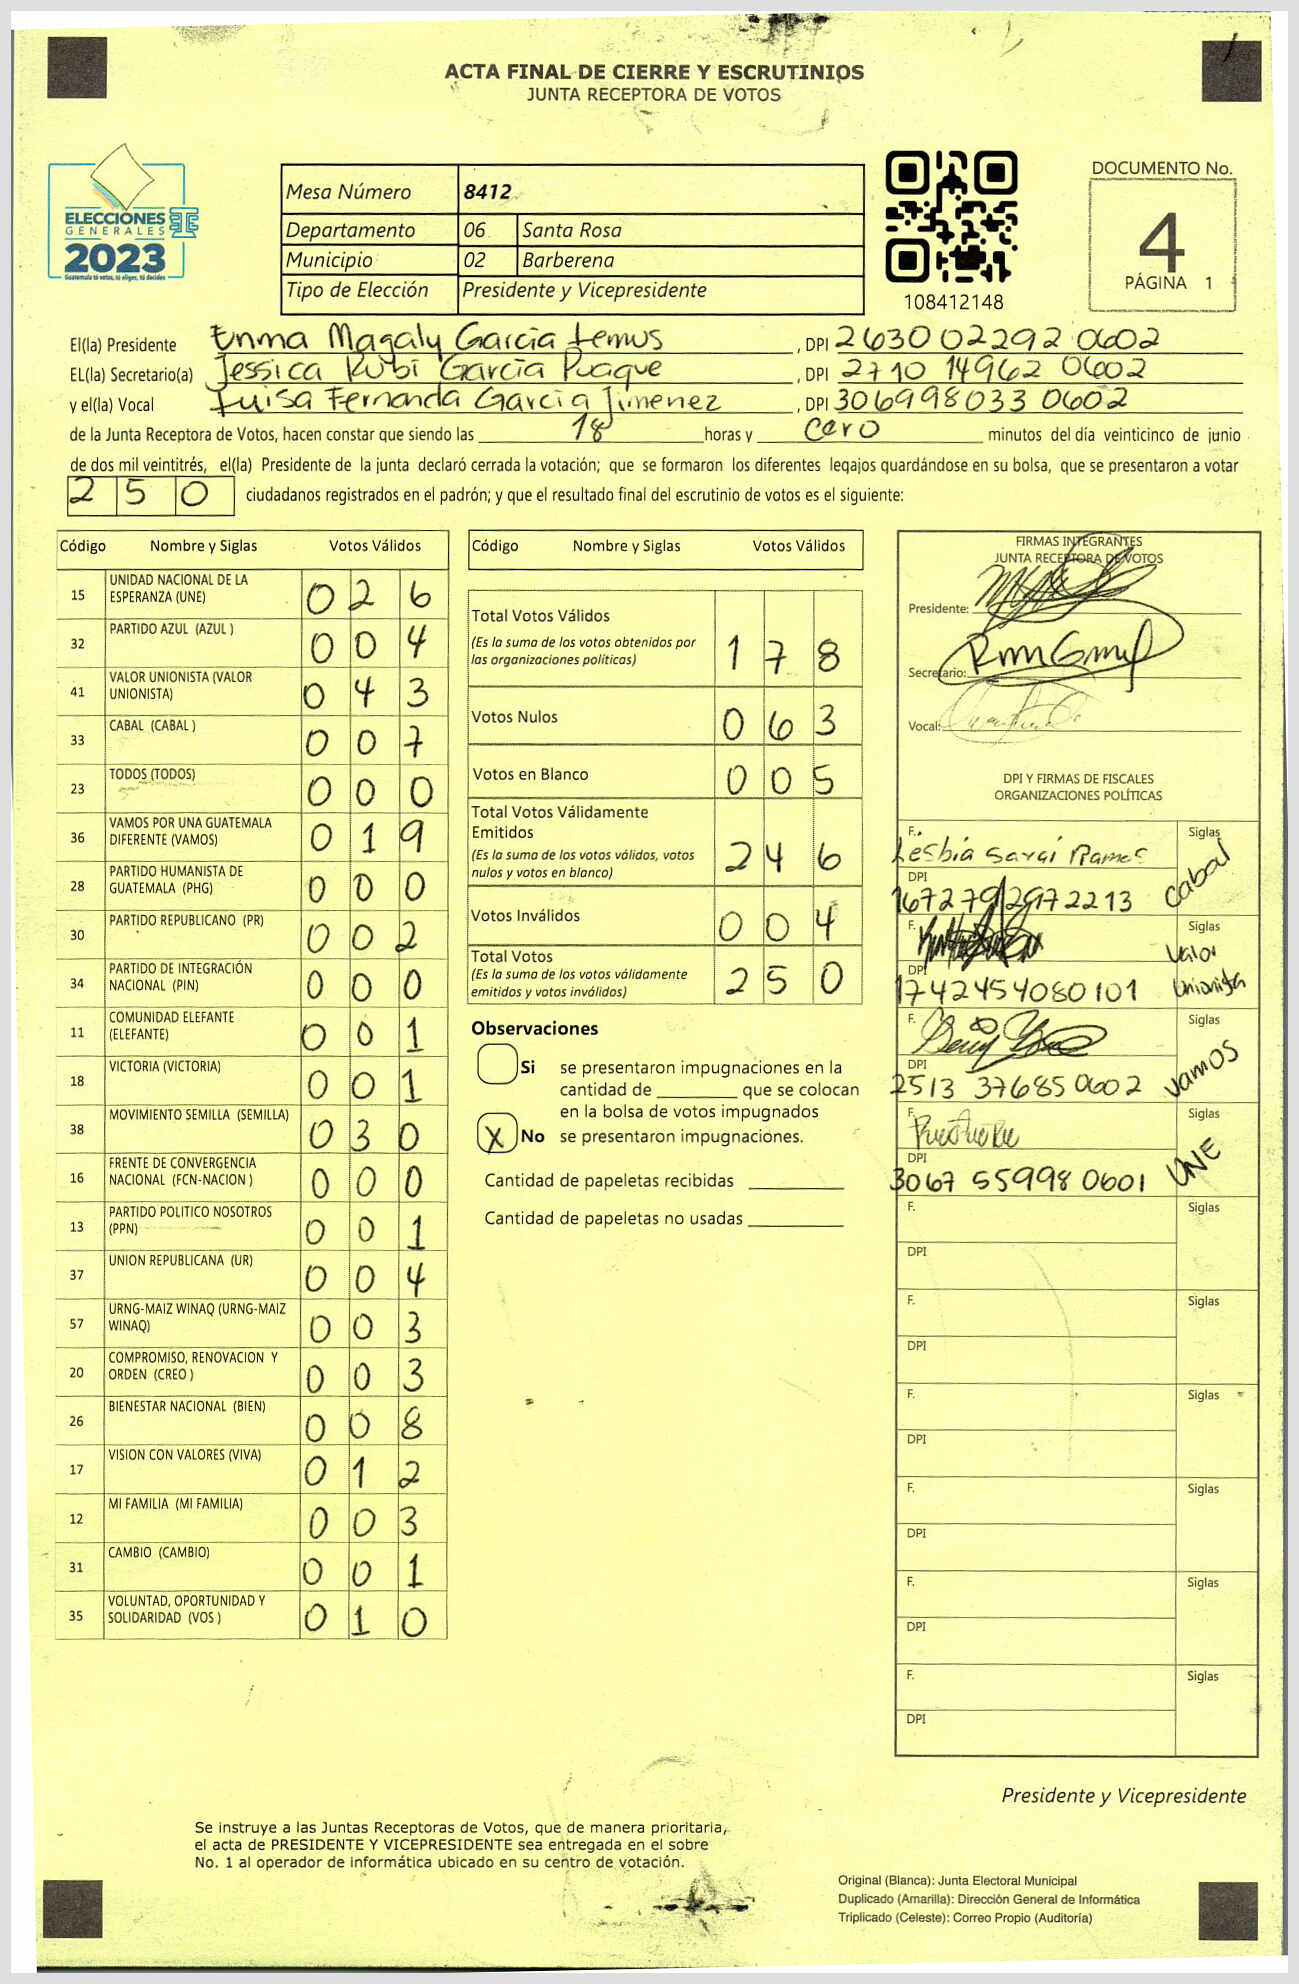 ACTA FINAL DE CIERRE Y ESCRUTINIOS
JUNTA RECEPTORA DE VOTOS
ELECCIONES
GENERALES
2023
Guatemala tú votas, tú eliges, tú decides
Mesa Número 8412
Departamento 06 Santa Rosa
Municipio 02 Barberena
Tipo de Elección Presidente y Vicepresidente
108412148
DOCUMENTO No.
4
PÁGINA 1
El(la) Presidente Enma Magaly García Lemus, DPI 2630 02292 0602
EL(la) Secretario(a) Jessica Rubi García Puaque, DPI 2710 14962 0602
y el(la) Vocal Luisa Fernanda García Jimenez, DPI 306998033 0602
de la Junta Receptora de Votos, hacen constar que siendo las 18 horas y cero minutos del día veinticinco de junio
de dos mil veintitrés, el(la) Presidente de la junta declaró cerrada la votación; que se formaron los diferentes legajos quardándose en su bolsa, que se presentaron a votar
250 ciudadanos registrados en el padrón; y que el resultado final del escrutinio de votos es el siguiente:
Código Nombre y Siglas Votos Válidos
15 UNIDAD NACIONAL DE LA ESPERANZA (UNE) 026
32 PARTIDO AZUL (AZUL ) 004
41 VALOR UNIONISTA (VALOR UNIONISTA) 043
33 CABAL (CABAL ) 007
23 TODOS (TODOS) 000
36 VAMOS POR UNA GUATEMALA DIFERENTE (VAMOS) 019
28 PARTIDO HUMANISTA DE GUATEMALA (PHG) 000
30 PARTIDO REPUBLICANO (PR) 002
34 PARTIDO DE INTEGRACIÓN NACIONAL (PIN) 000
11 COMUNIDAD ELEFANTE (ELEFANTE) 001
18 VICTORIA (VICTORIA) 001
38 MOVIMIENTO SEMILLA (SEMILLA) 030
16 FRENTE DE CONVERGENCIA NACIONAL (FCN-NACION ) 000
13 PARTIDO POLITICO NOSOTROS (PPN) 001
37 UNION REPUBLICANA (UR) 004
57 URNG-MAIZ WINAQ (URNG-MAIZ WINAQ) 003
20 COMPROMISO, RENOVACION Y ORDEN (CREO ) 003
26 BIENESTAR NACIONAL (BIEN) 008
17 VISION CON VALORES (VIVA) 012
12 MI FAMILIA (MI FAMILIA) 003
31 CAMBIO (CAMBIO) 001
35 VOLUNTAD, OPORTUNIDAD Y SOLIDARIDAD (VOS ) 010
Código Nombre y Siglas Votos Válidos
Total Votos Válidos
(Es la suma de los votos obtenidos por las organizaciones políticas) 178
Votos Nulos 063
Votos en Blanco 005
Total Votos Válidamente Emitidos
(Es la suma de los votos válidos, votos nulos y votos en blanco) 246
Votos Inválidos 004
Total Votos
(Es la suma de los votos válidamente emitidos y votos inválidos) 250
Observaciones
Si se presentaron impugnaciones en la
cantidad de ________ que se colocan
en la bolsa de votos impugnados
X No se presentaron impugnaciones.
Cantidad de papeletas recibidas
Cantidad de papeletas no usadas
FIRMAS INTEGRANTES
JUNTA RECEPTORA DE VOTOS
Presidente:
Secretario:
Vocal:
DPI Y FIRMAS DE FISCALES
ORGANIZACIONES POLÍTICAS
F. Lesbia Sarai Ramos Siglas Cabal
DPI 1672792972213
F. Siglas Valor Unionista
DPI 1742454080101
F. Siglas VAMOS
DPI 2513 37685 0602
F. Siglas UNE
DPI 3067 55998 0601
F. Siglas
DPI
F. Siglas
DPI
F. Siglas
DPI
F. Siglas
DPI
F. Siglas
DPI
F. Siglas
DPI
Presidente y Vicepresidente
Se instruye a las Juntas Receptoras de Votos, que de manera prioritaria,
el acta de PRESIDENTE Y VICEPRESIDENTE sea entregada en el sobre
No. 1 al operador de informática ubicado en su centro de votación.
Original (Blanca): Junta Electoral Municipal
Duplicado (Amarilla): Dirección General de Informática
Triplicado (Celeste): Correo Propio (Auditoría)